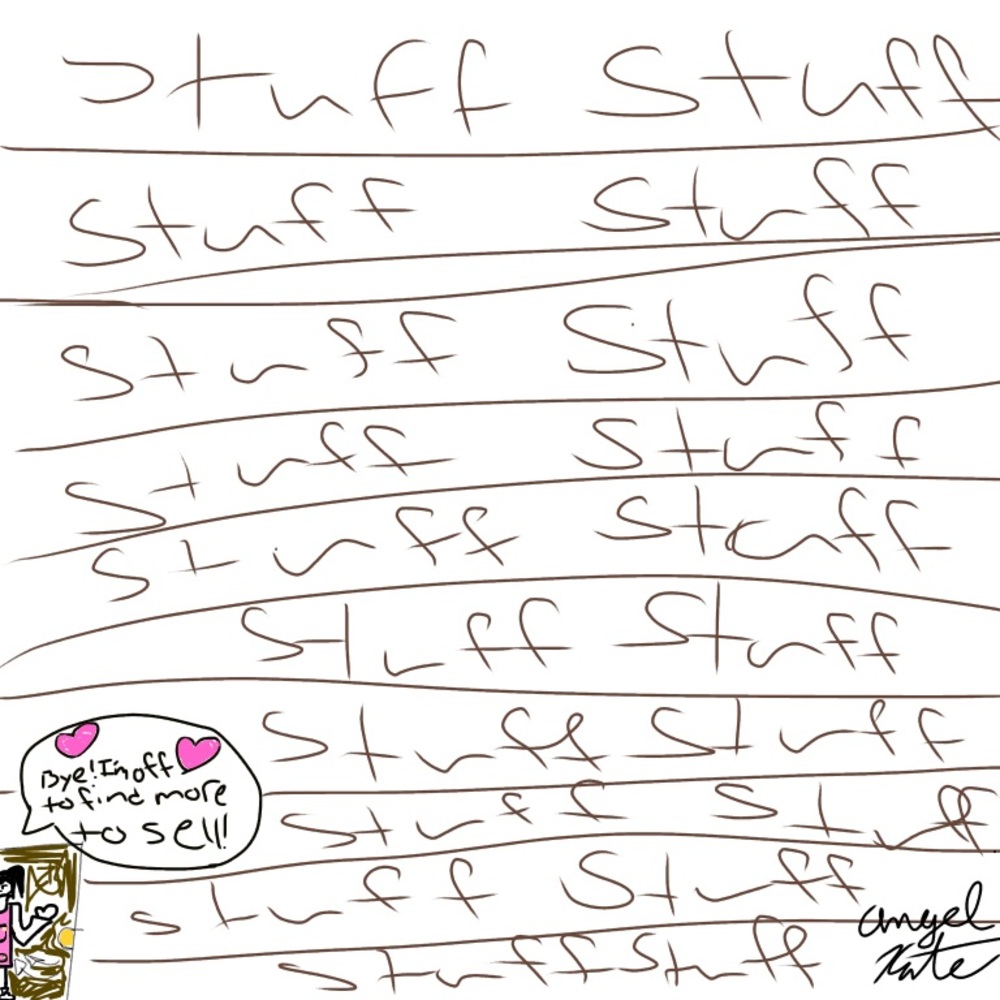 Stuff Stuff
Stuff Stuff
Stuff Stuff
Stuff Stuff
Stuff Stuff
Stuff Stuff
Stuff Stuff
Bye! I'm off
to find more
to sell!
Stuff Stuff
Stuff Stuff
Stuff Stuff
angel
Kate